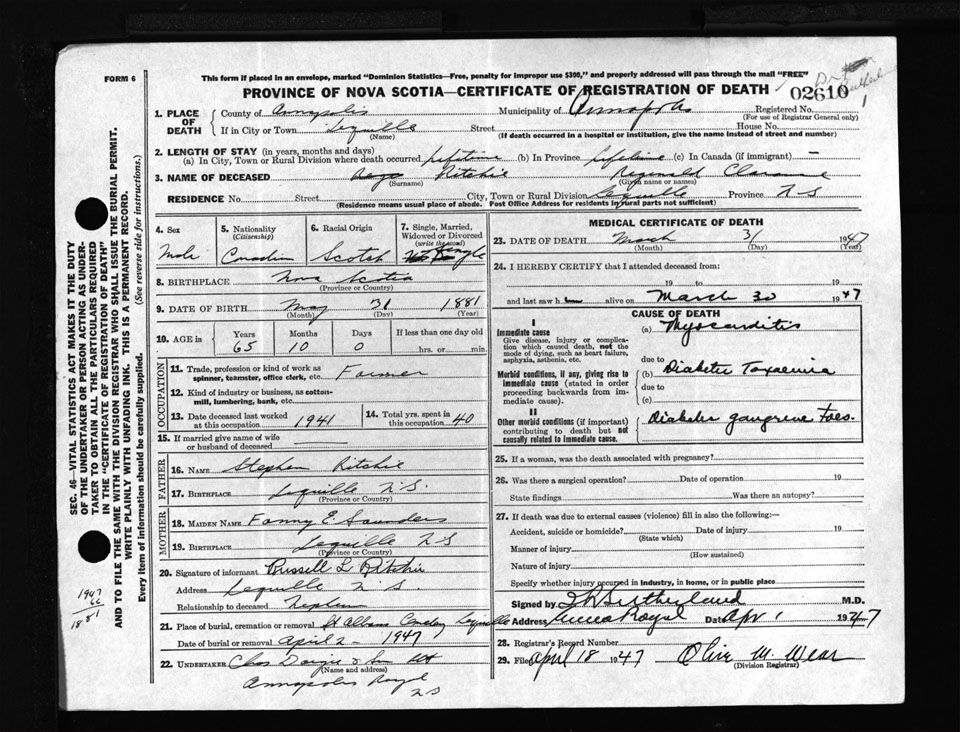 FORM 6
This form if placed in an envelope, marked "Dominion Statistics—Free, penalty for improper use $300," and properly addressed will pass through the mail "FREE"
PROVINCE OF NOVA SCOTIA—CERTIFICATE OF REGISTRATION OF DEATH
02610
1. PLACE OF DEATH
County of Annapolis Municipality of Annapolis Registered No.
(For use of Registrar General only)
If in City or Town Lequille Street House No.
(Name) (If death occurred in a hospital or institution, give the name instead of street and number)
2. LENGTH OF STAY (in years, months and days)
(a) In City, Town or Rural Division where death occurred lifetime (b) In Province lifetime (c) In Canada (if immigrant) —
3. NAME OF DECEASED Ritchie Reginald Clarence
(Surname) (Given name or names)
RESIDENCE No. Street City, Town or Rural Division Lequille Province N S
(Residence means usual place of abode. Post Office Address for residents in rural parts not sufficient)
4. Sex
Male
5. Nationality
(Citizenship)
Canadian
6. Racial Origin
Scotch
7. Single, Married, Widowed or Divorced
(write the word)
Single
8. BIRTHPLACE Nova Scotia
(Province or Country)
9. DATE OF BIRTH May 31 1881
(Month) (Day) (Year)
10. AGE in Years Months Days If less than one day old
65 10 0 hrs. or min.
OCCUPATION
11. Trade, profession or kind of work as spinner, teamster, office clerk, etc. Farmer
12. Kind of industry or business, as cotton-mill, lumbering, bank, etc.
13. Date deceased last worked at this occupation 1941
14. Total yrs. spent in this occupation 40
15. If married give name of wife or husband of deceased
FATHER
16. NAME Stephen Ritchie
17. BIRTHPLACE Lequille N.S.
(Province or Country)
MOTHER
18. MAIDEN NAME Fanny E. Saunders
19. BIRTHPLACE Lequille N S
(Province or Country)
20. Signature of informant Russell L Ritchie
Address Lequille N S
Relationship to deceased Nephew
21. Place of burial, cremation or removal St Albans Cemetery Lequille
Date of burial or removal April 2 - 1947
22. UNDERTAKER
(Name and address)
Annapolis Royal
N S
MEDICAL CERTIFICATE OF DEATH
23. DATE OF DEATH March 31 1947
(Month) (Day) (Year)
24. I HEREBY CERTIFY that I attended deceased from:
19 to 19
and last saw h alive on March 30 1947
CAUSE OF DEATH
I
Immediate cause
Give disease, injury or complication which caused death, not the mode of dying, such as heart failure, asphyxia, asthenia, etc.
(a) Myocarditis
due to
Morbid conditions, if any, giving rise to immediate cause (stated in order proceeding backwards from immediate cause).
(b) Diabetic Toxaemia
due to
(c)
II
Other morbid conditions (if important) contributing to death but not causally related to immediate cause.
Diabetic gangrene Toes.
25. If a woman, was the death associated with pregnancy?
26. Was there a surgical operation? Date of operation 19
State findings Was there an autopsy?
27. If death was due to external causes (violence) fill in also the following:—
Accident, suicide or homicide? Date of injury 19
(State which)
Manner of injury
(How sustained)
Nature of injury
Specify whether injury occurred in industry, in home, or in public place
Signed by Sutherland M.D.
Address Anna Royal Date Apr 1 1947
28. Registrar's Record Number
29. Filed April 18 1947 Olive M. Wear
(Division Registrar)
SEC. 46—VITAL STATISTICS ACT MAKES IT THE DUTY OF THE UNDERTAKER OR PERSON ACTING AS UNDERTAKER TO OBTAIN ALL THE PARTICULARS REQUIRED IN THE "CERTIFICATE OF REGISTRATION OF DEATH" AND TO FILE THE SAME WITH THE DIVISION REGISTRAR WHO SHALL ISSUE THE BURIAL PERMIT.
WRITE PLAINLY WITH UNFADING INK. THIS IS A PERMANENT RECORD.
Every item of information should be carefully supplied. (See reverse side for instructions.)
1947
66
1881